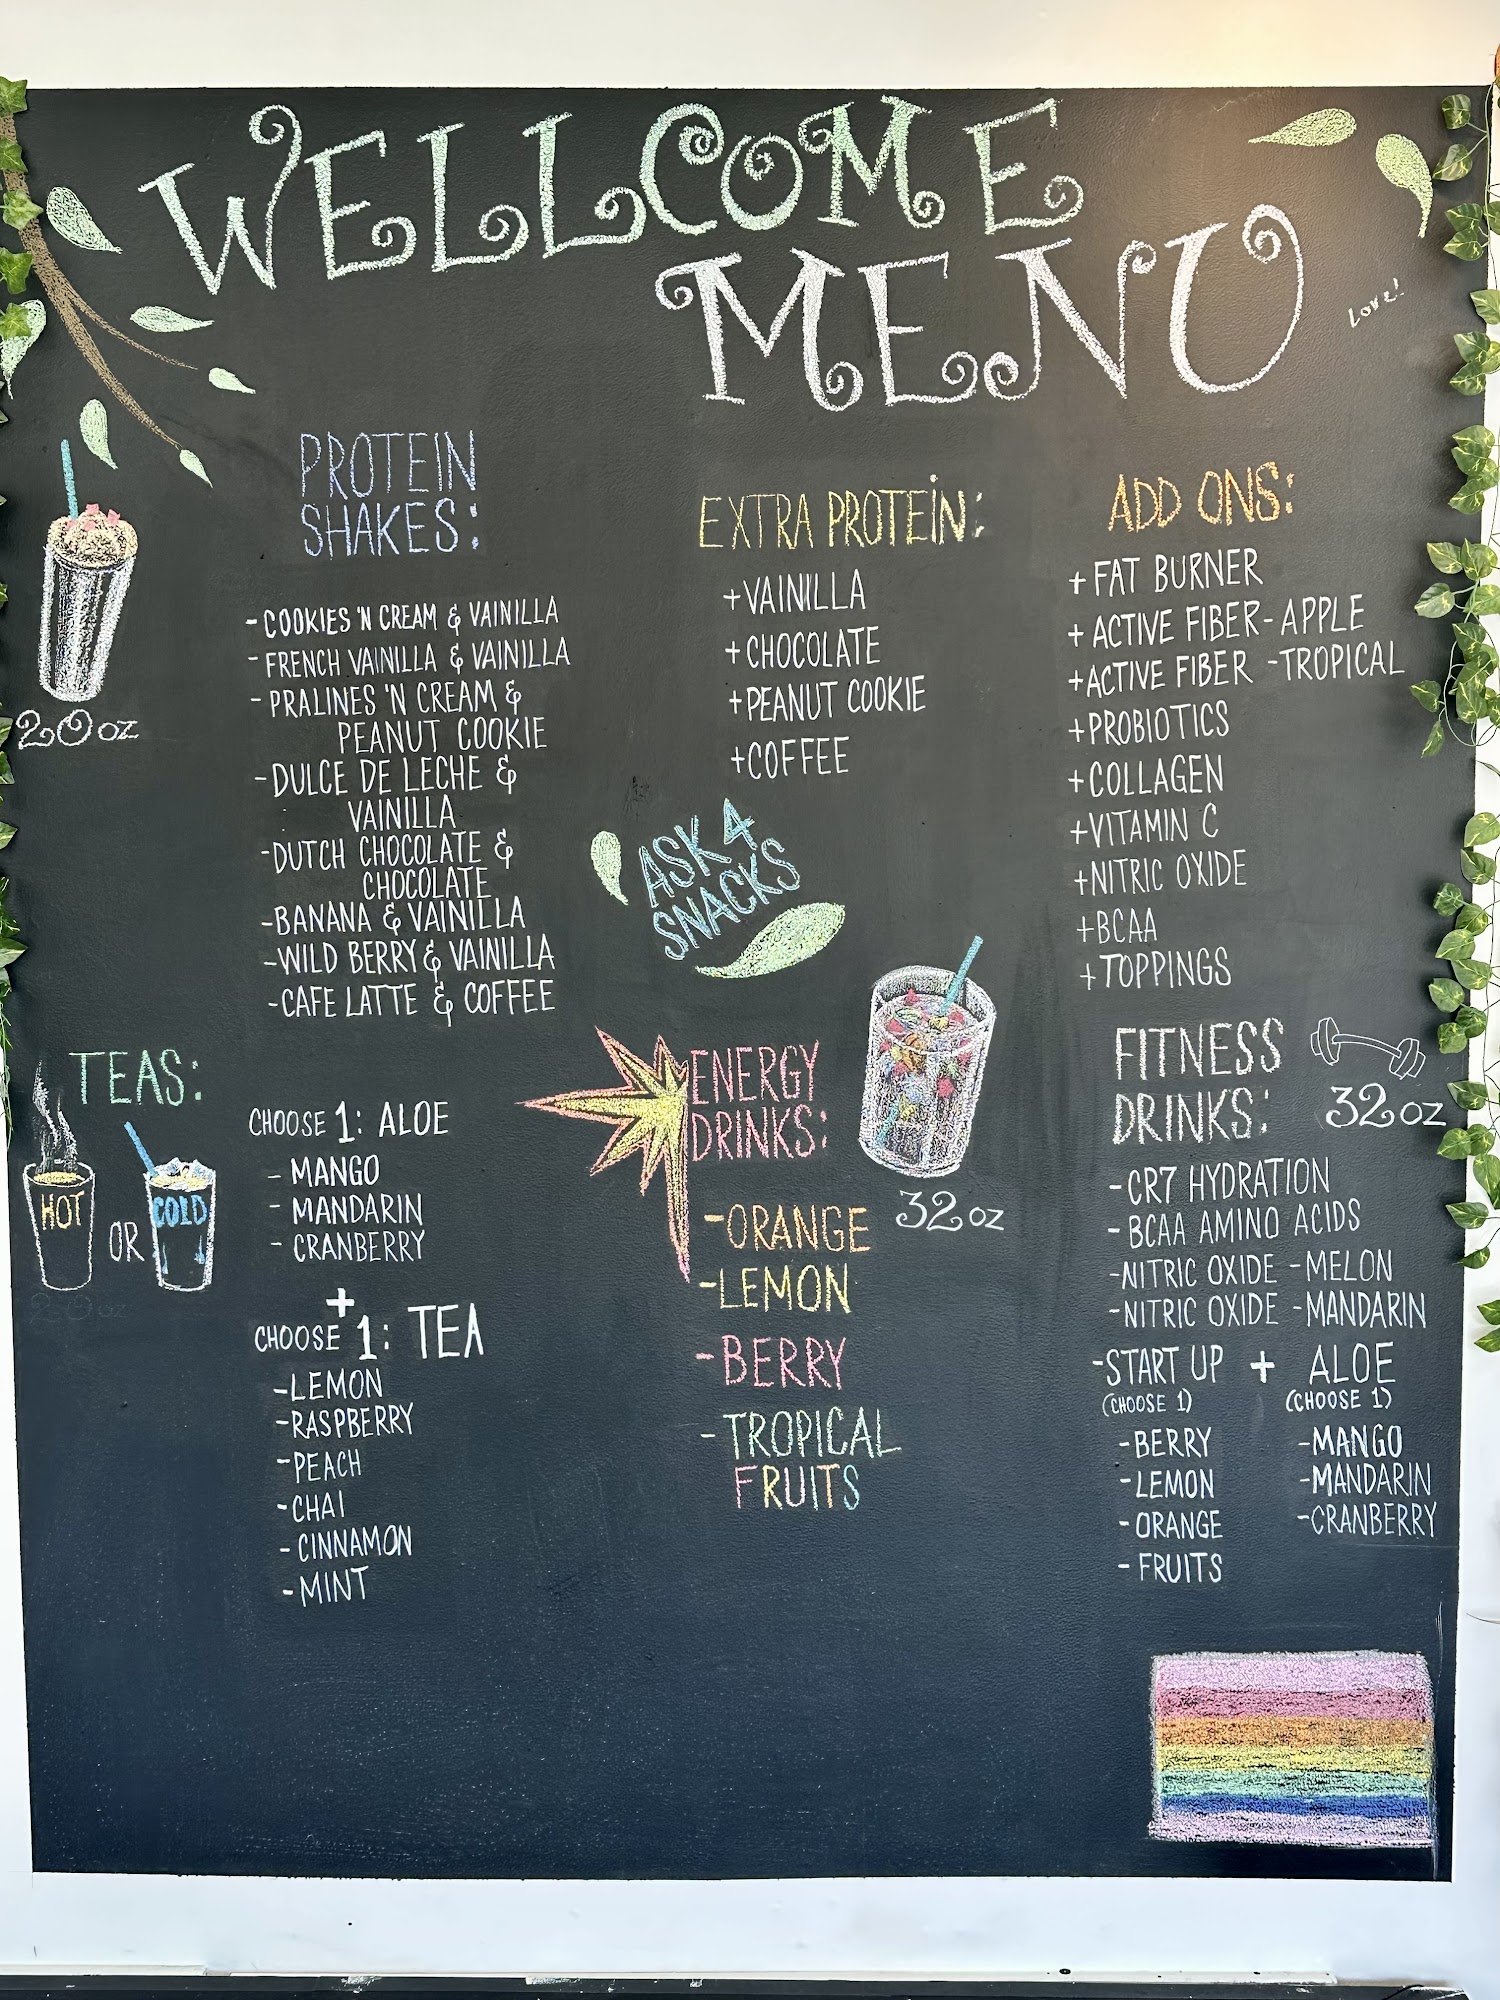 WELLCOME
MENU
Love!
PROTEIN
SHAKES:
20 oz
-COOKIES 'N CREAM & VAINILLA
-FRENCH VAINILLA & VAINILLA
-PRALINES 'N CREAM &
PEANUT COOKIE
-DULCE DE LECHE &
VAINILLA
-DUTCH CHOCOLATE &
CHOCOLATE
-BANANA & VAINILLA
-WILD BERRY & VAINILLA
-CAFE LATTE & COFFEE
EXTRA PROTEIN:
+VAINILLA
+CHOCOLATE
+PEANUT COOKIE
+COFFEE
ASK 4
SNACKS
ADD ONS:
+FAT BURNER
+ACTIVE FIBER-APPLE
+ACTIVE FIBER -TROPICAL
+PROBIOTICS
+COLLAGEN
+VITAMIN C
+NITRIC OXIDE
+BCAA
+TOPPINGS
TEAS:
HOT
OR
COLD
20 oz
CHOOSE 1: ALOE
- MANGO
- MANDARIN
- CRANBERRY
+
CHOOSE 1: TEA
-LEMON
-RASPBERRY
-PEACH
-CHAI
-CINNAMON
-MINT
ENERGY
DRINKS:
32 oz
-ORANGE
-LEMON
-BERRY
-TROPICAL
FRUITS
FITNESS
DRINKS:
32 oz
-CR7 HYDRATION
-BCAA AMINO ACIDS
-NITRIC OXIDE -MELON
-NITRIC OXIDE -MANDARIN
-START UP + ALOE
(CHOOSE 1) (CHOOSE 1)
-BERRY -MANGO
-LEMON -MANDARIN
-ORANGE -CRANBERRY
-FRUITS